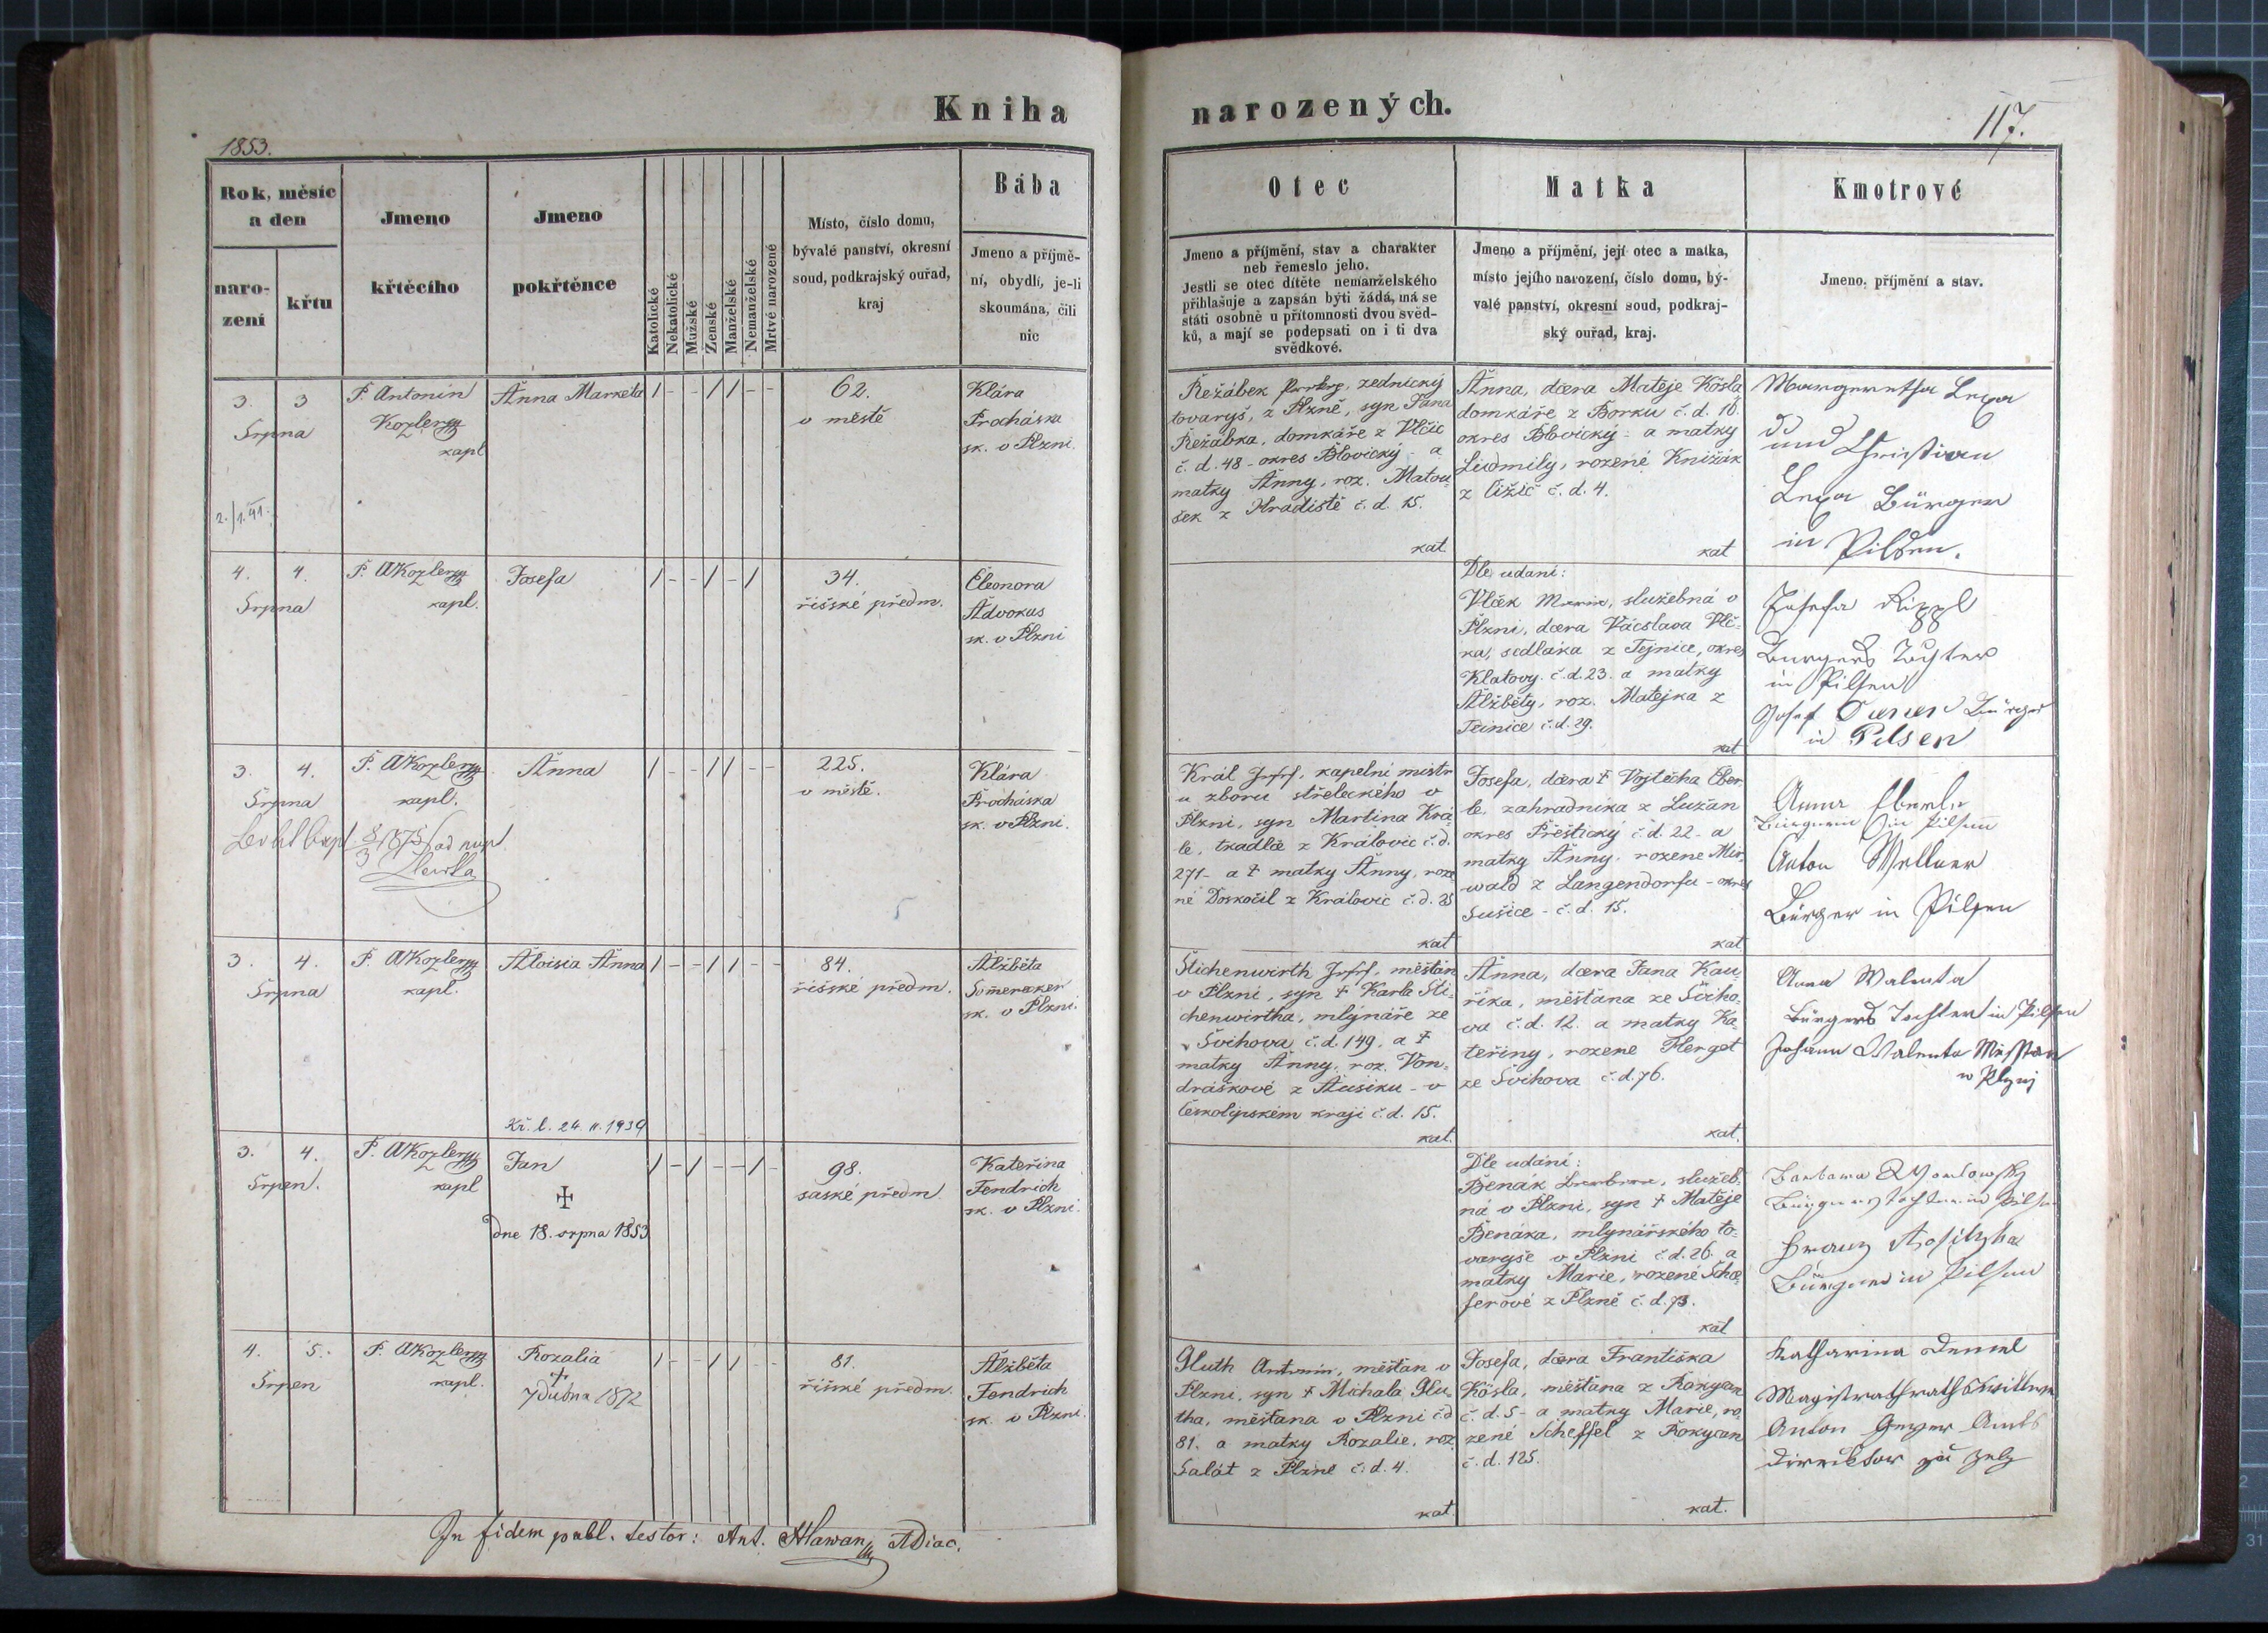 Kniha
narozených.
117.
1853.
Rok, měsíc
a den
naro-
zení
křtu
Jmeno
křtěcího
Jmeno
pokřtěnce
Katolické
Nekatolické
Mužské
Ženské
Manželské
Nemanželské
Mrtvé narozené
Místo, číslo domu,
bývalé panství, okresní
soud, podkrajský ouřad,
kraj
Bába
Jmeno a příjmě-
ní, obydlí, je-li
skoumána, čili
nic
Otec
Jmeno a příjmění, stav a charakter
neb řemeslo jeho.
Jestli se otec dítěte nemanželského
přihlašuje a zapsán býti žádá, má se
státi osobně u přítomnosti dvou svěd-
ků, a mají se podepsati on i ti dva
svědkové.
Matka
Jmeno a příjmění, její otec a matka,
místo jejího narození, číslo domu, bý-
valé panství, okresní soud, podkraj-
ský ouřad, kraj.
Kmotrové
Jmeno, příjmění a stav.
3. 3
Srpna
P. Antonín
Kozler
kapl
Anna Marketa
1 - - / / - -
62.
v městě
Klára
Procháska
sk. v Plzni.
Řežábek, zednický
tovaryš, z Plzně, syn Jana
Řežábka, domkáře z Vlčic
č. d. 48 - okres Blovický - a
matky Anny, roz. Matou-
šek z Hradiště č. d. 15.
kat
Anna, dcera Mateje Kösla
domkáře z Borku č. d. 10.
okres Blovický - a matky
Ludmily, rozené Knižák
z Čižic č. d. 4.
kat
Margaretha Lexa
und Christian
Lexa Bürger
in Pilsen.
4. 4.
Srpna
P. AKozler
kapl.
Josefa
1 - - / - /
34.
řišské předm.
Eleonora
Advokas
sk. v Plzni
Dle udaní:
Vlček Marie, služebná v
Plzni, dcera Václava Vlč-
ka, sedláka z Tejnice, okres
Klatovy. č. d. 23. a matky
Alžběty, roz. Matějka z
Teinice č. d. 29.
kat
Josefa Rippl
Burgers Tochter
in Pilsen
Josef Bürger
in Pilsen
3. 4.
Srpna
P. AKozler
kapl.
Anna
1 - - / / - -
225.
v městě.
Klára
Procháska
sk. v Plzni.
Král Josef, kapelní mistr
u zboru střeleckého v
Plzni, syn Martina Krá-
le, tkadlce z Královic č. d.
271 - a † matky Anny, roze-
né Doskočil z Královic č. d. 25
kat
Josefa, dcera † Vojtěcha Eber-
le, zahradníka z Lužan
okres Přeštický č d. 22 - a
matky Anny, rozene Mir-
wald z Langendorfu - okres
Sušice - č. d. 15.
kat
Anna Eberle
Bürgerin in Pilsen
Anton Wellner
Bürger in Pilsen
3. 4.
Srpna
P. AKozler
kapl.
Aloisia Anna
1 - - / / - -
Kř. l. 24. II. 1939
84.
řišské předm.
Alžběta
sk. v Plzni.
Stichenwirth Josef, měštán
v Plzni, syn † Karla Sti-
chenwirtha, mlynáře ze
Švihova č. d. 149. a †
matky Anny, roz. Von-
dráškové z Ausiku - v
Českolipském kraji č. d. 15.
kat.
Anna, dcera Jana Kau-
řika, měšťana ze Švího-
va č. d. 12. a matky Ka-
teřiny, rozene Herget
ze Švihova č. d. 76.
kat.
Anna Walenta
Bürgers Tochter in Pilsen
Johann Walenta Měsstan
w Plzni
3. 4.
Srpen.
P. AKozler
kapl
Jan
†
dne 18. srpna 1853
1 - / - - / -
98.
saské předm.
Kateřina
Fendrich
sk. v Plzni.
Dle udání:
Benák Barbora, služeb-
ná v Plzni, syn † Matěje
Benáka, mlynářského to-
varyše v Plzni č. d. 26. a
matky Marie, rozené Scha-
ferové z Plzně č. d. 73.
kat
Barbara
Bürgers Tochter in Pilsen
Franz
Bürger in Pilsen
4. 5.
Srpen
P. AKozler
kapl.
Rozalia
†
7 Dubna 1872
1 - - / / - -
81.
řišské předm.
Alžběta
Fendrich
sk. v Plzni.
Gluth Antonín, měštan v
Plzni, syn † Michala Glu-
tha, měštana v Plzni č d
81. a matky Rozalie, roz.
Salát z Plzně č. d. 4.
kat
Josefa, dcera Františka
Kösla, měštana z Rokycan
č. d. 5 - a matky Marie, ro-
zené Scheffel z Rokycan
č. d. 125.
kat.
Katharina
Anton Geyer Amts
Direktor zu
In fidem publ. testor: Ant. Hlawan ADiac.